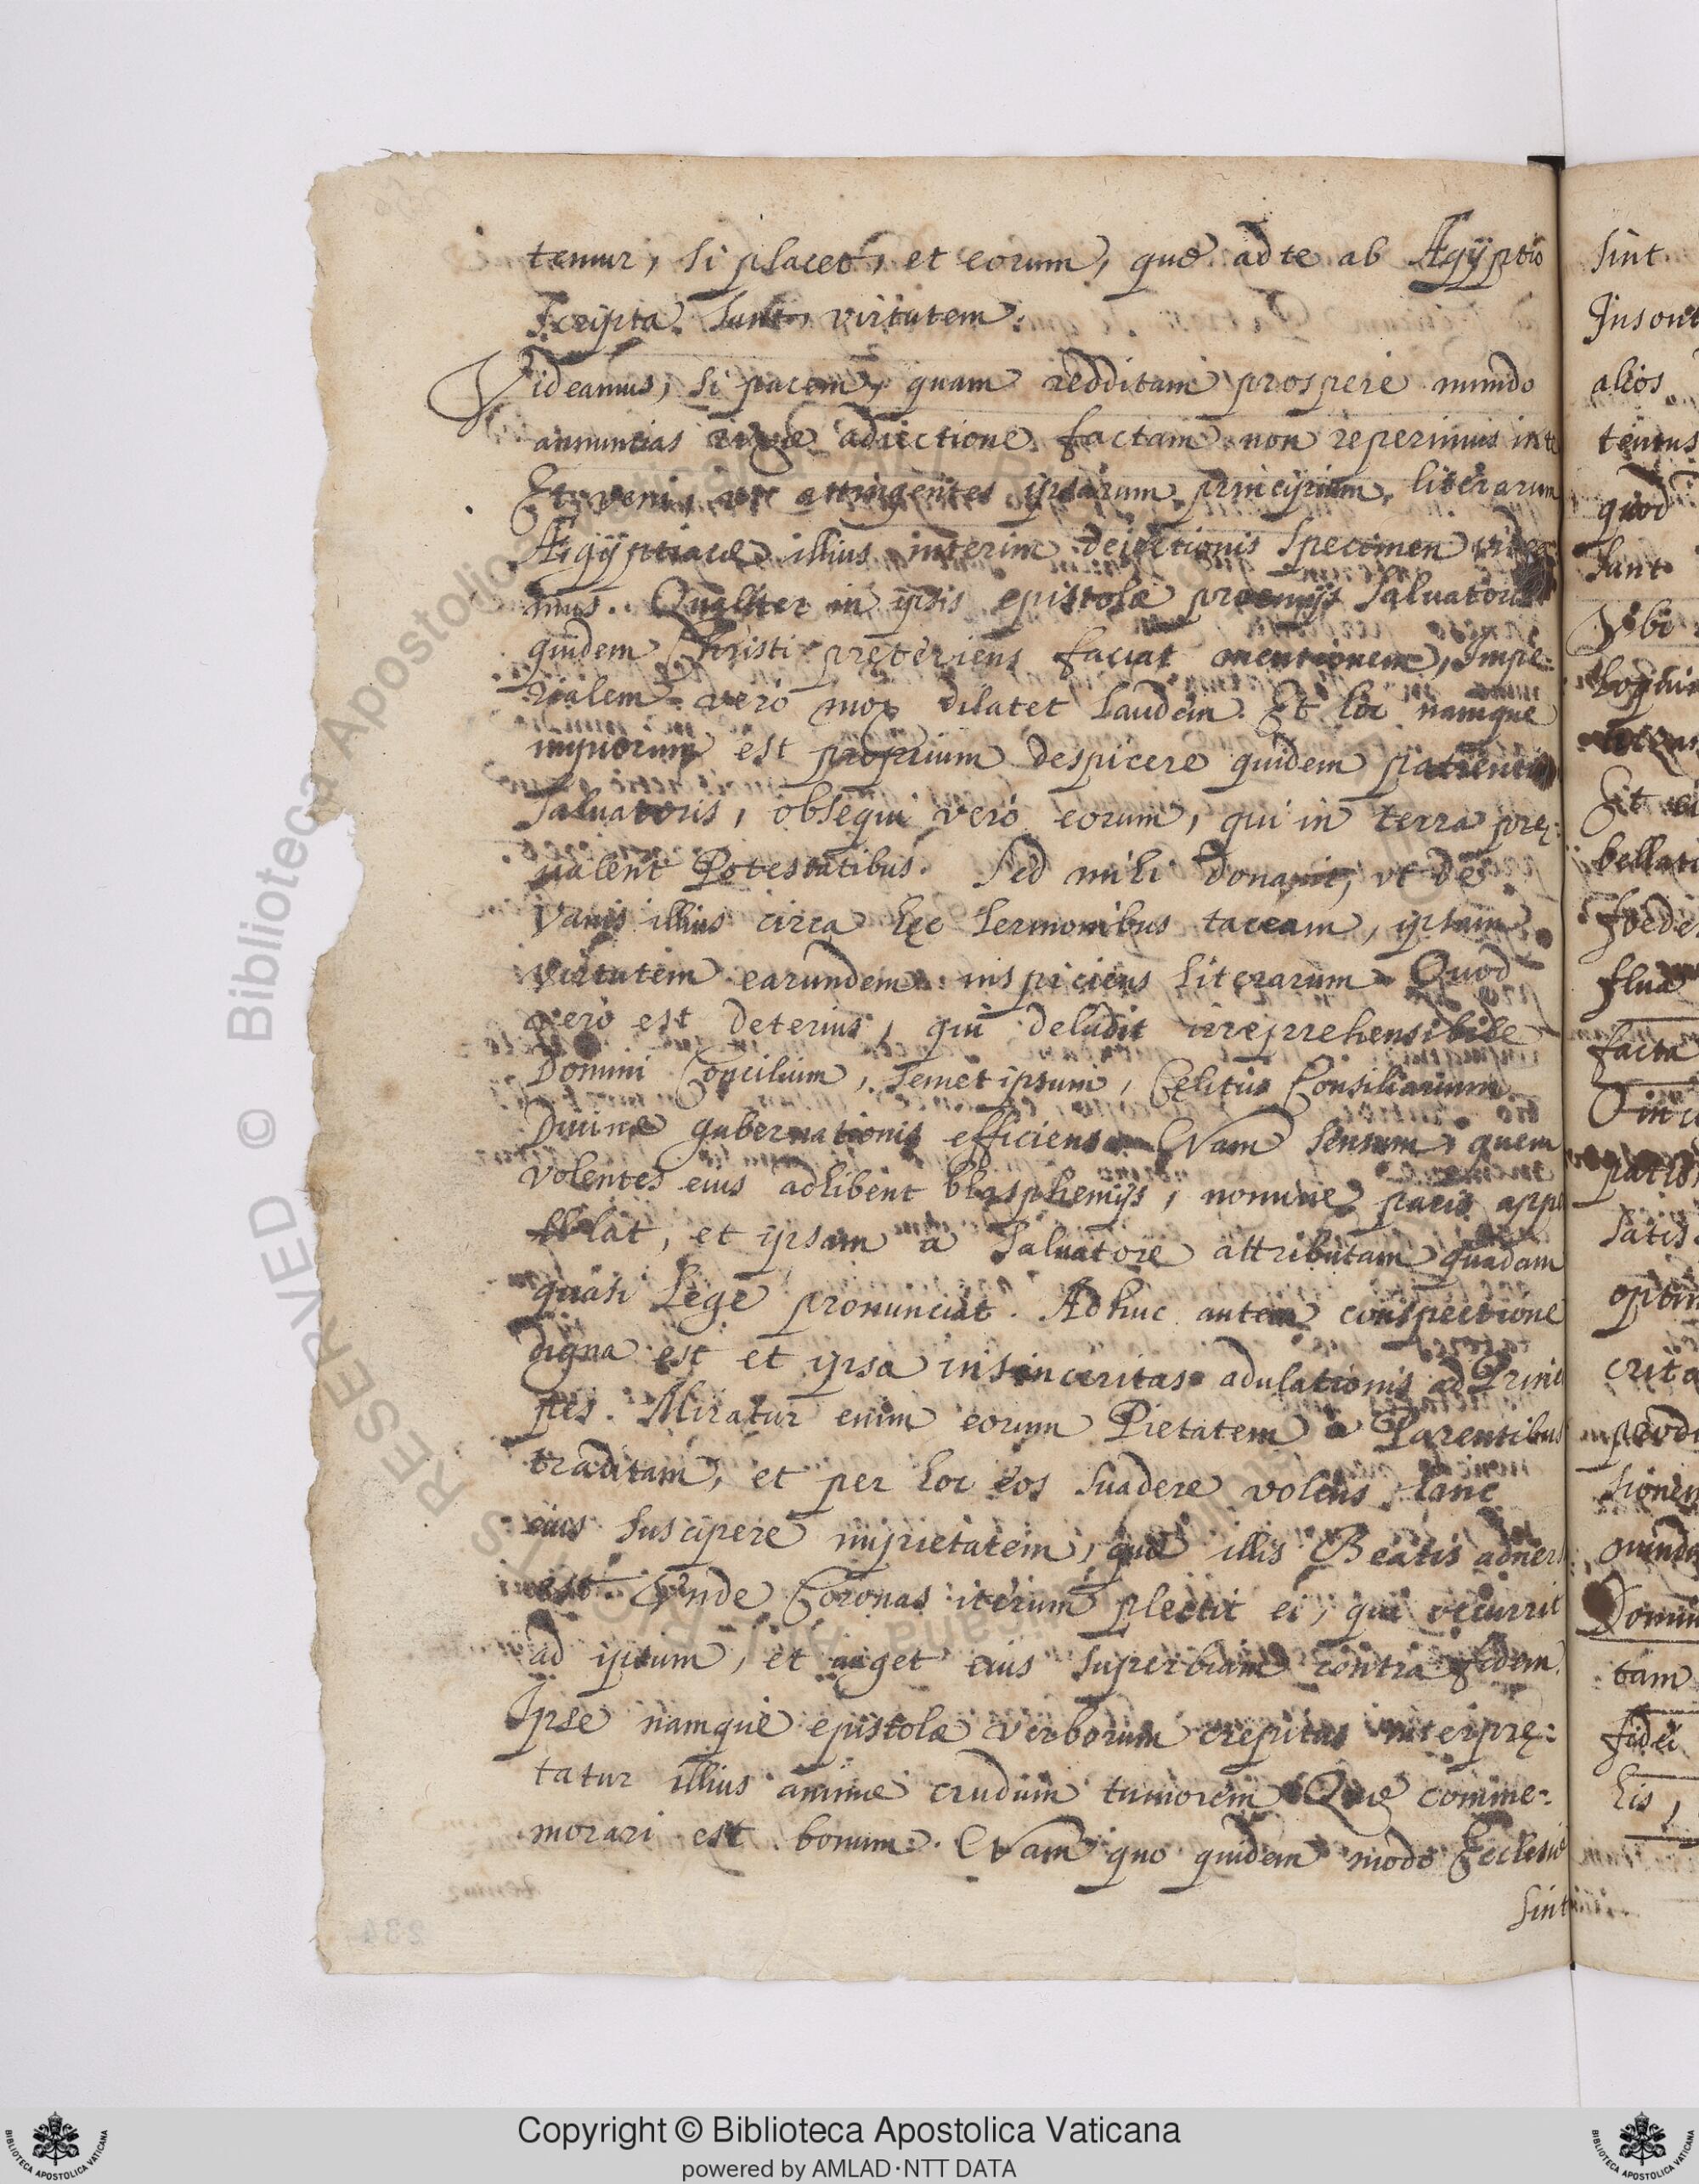 temur, si placet, et eorum, quæ ad te ab Ægÿptio
scripta sunt, virtutem.
Videamus, si pacem, quam redditam prospere mundo
annuntias adiectione factam non reperimus
Et veni, attingentes ipsarum principium literarum
Ægÿptiacæ illius interim deiectionis specimen videa
mus. Qualiter in ipsis epistolæ proemijs Saluatoris
quidem Christi pręteriens faciat mentionem, Impe:
rialem vero mox dilatet laudem. Et hoc namque
impiorum est proprium despicere quidem patientiã
Saluatoris, obsequi verò eorum, qui in terra prę:
ualent Potestatibus. Sed mihi donauit, vt de
vanis illius circa hęc sermonibus taceam, ipsam
virtutem earundem inspiciens literarum. Quod
verò est deterius, qui deludit irreprehensibile
Domini Concilium, semet ipsum, Celitus Consiliarium
Diuinæ gubernationis efficiens. Nam sensum, quem
volentes eius adhibent blasphemijs, nomine pacis appe
llat, et ipsam a Saluatore attributam quadam
quasi Lege pronunciat. Adhuc autem conspectione
digna est et ipsa insinceritas adulationis ad Princi
pes. Miratur enim eorum Pietatem a Parentibus
traditam, et per hoc eos suadere volens hanc
eius suscipere impietatem, quæ illis Beatis aduersa
est. Vnde Coronas iterum plectit ei, qui occurrit
ad ipsum, et auget eius superbiam contra fidem.
Ipse namque epistolæ verborum crepitus interprę:
tatur illius animæ crudum tumorem. Quę comme:
morari est bonum. Nam quo quidem modo Ecclesiæ
sint
sint
Insont
alios
temus
quod
sunt
Et
bellati
foede
flua
facta
patro
satis.
optim
crita
prodi
sionem
Domin
tam
fidei
his,
234
RESERVED © Biblioteca Apostolica Vaticana
Copyright © Biblioteca Apostolica Vaticana
powered by AMLAD·NTT DATA
BIBLIOTECA APOSTOLICA VATICANA
BIBLIOTECA APOSTOLICA VATICANA